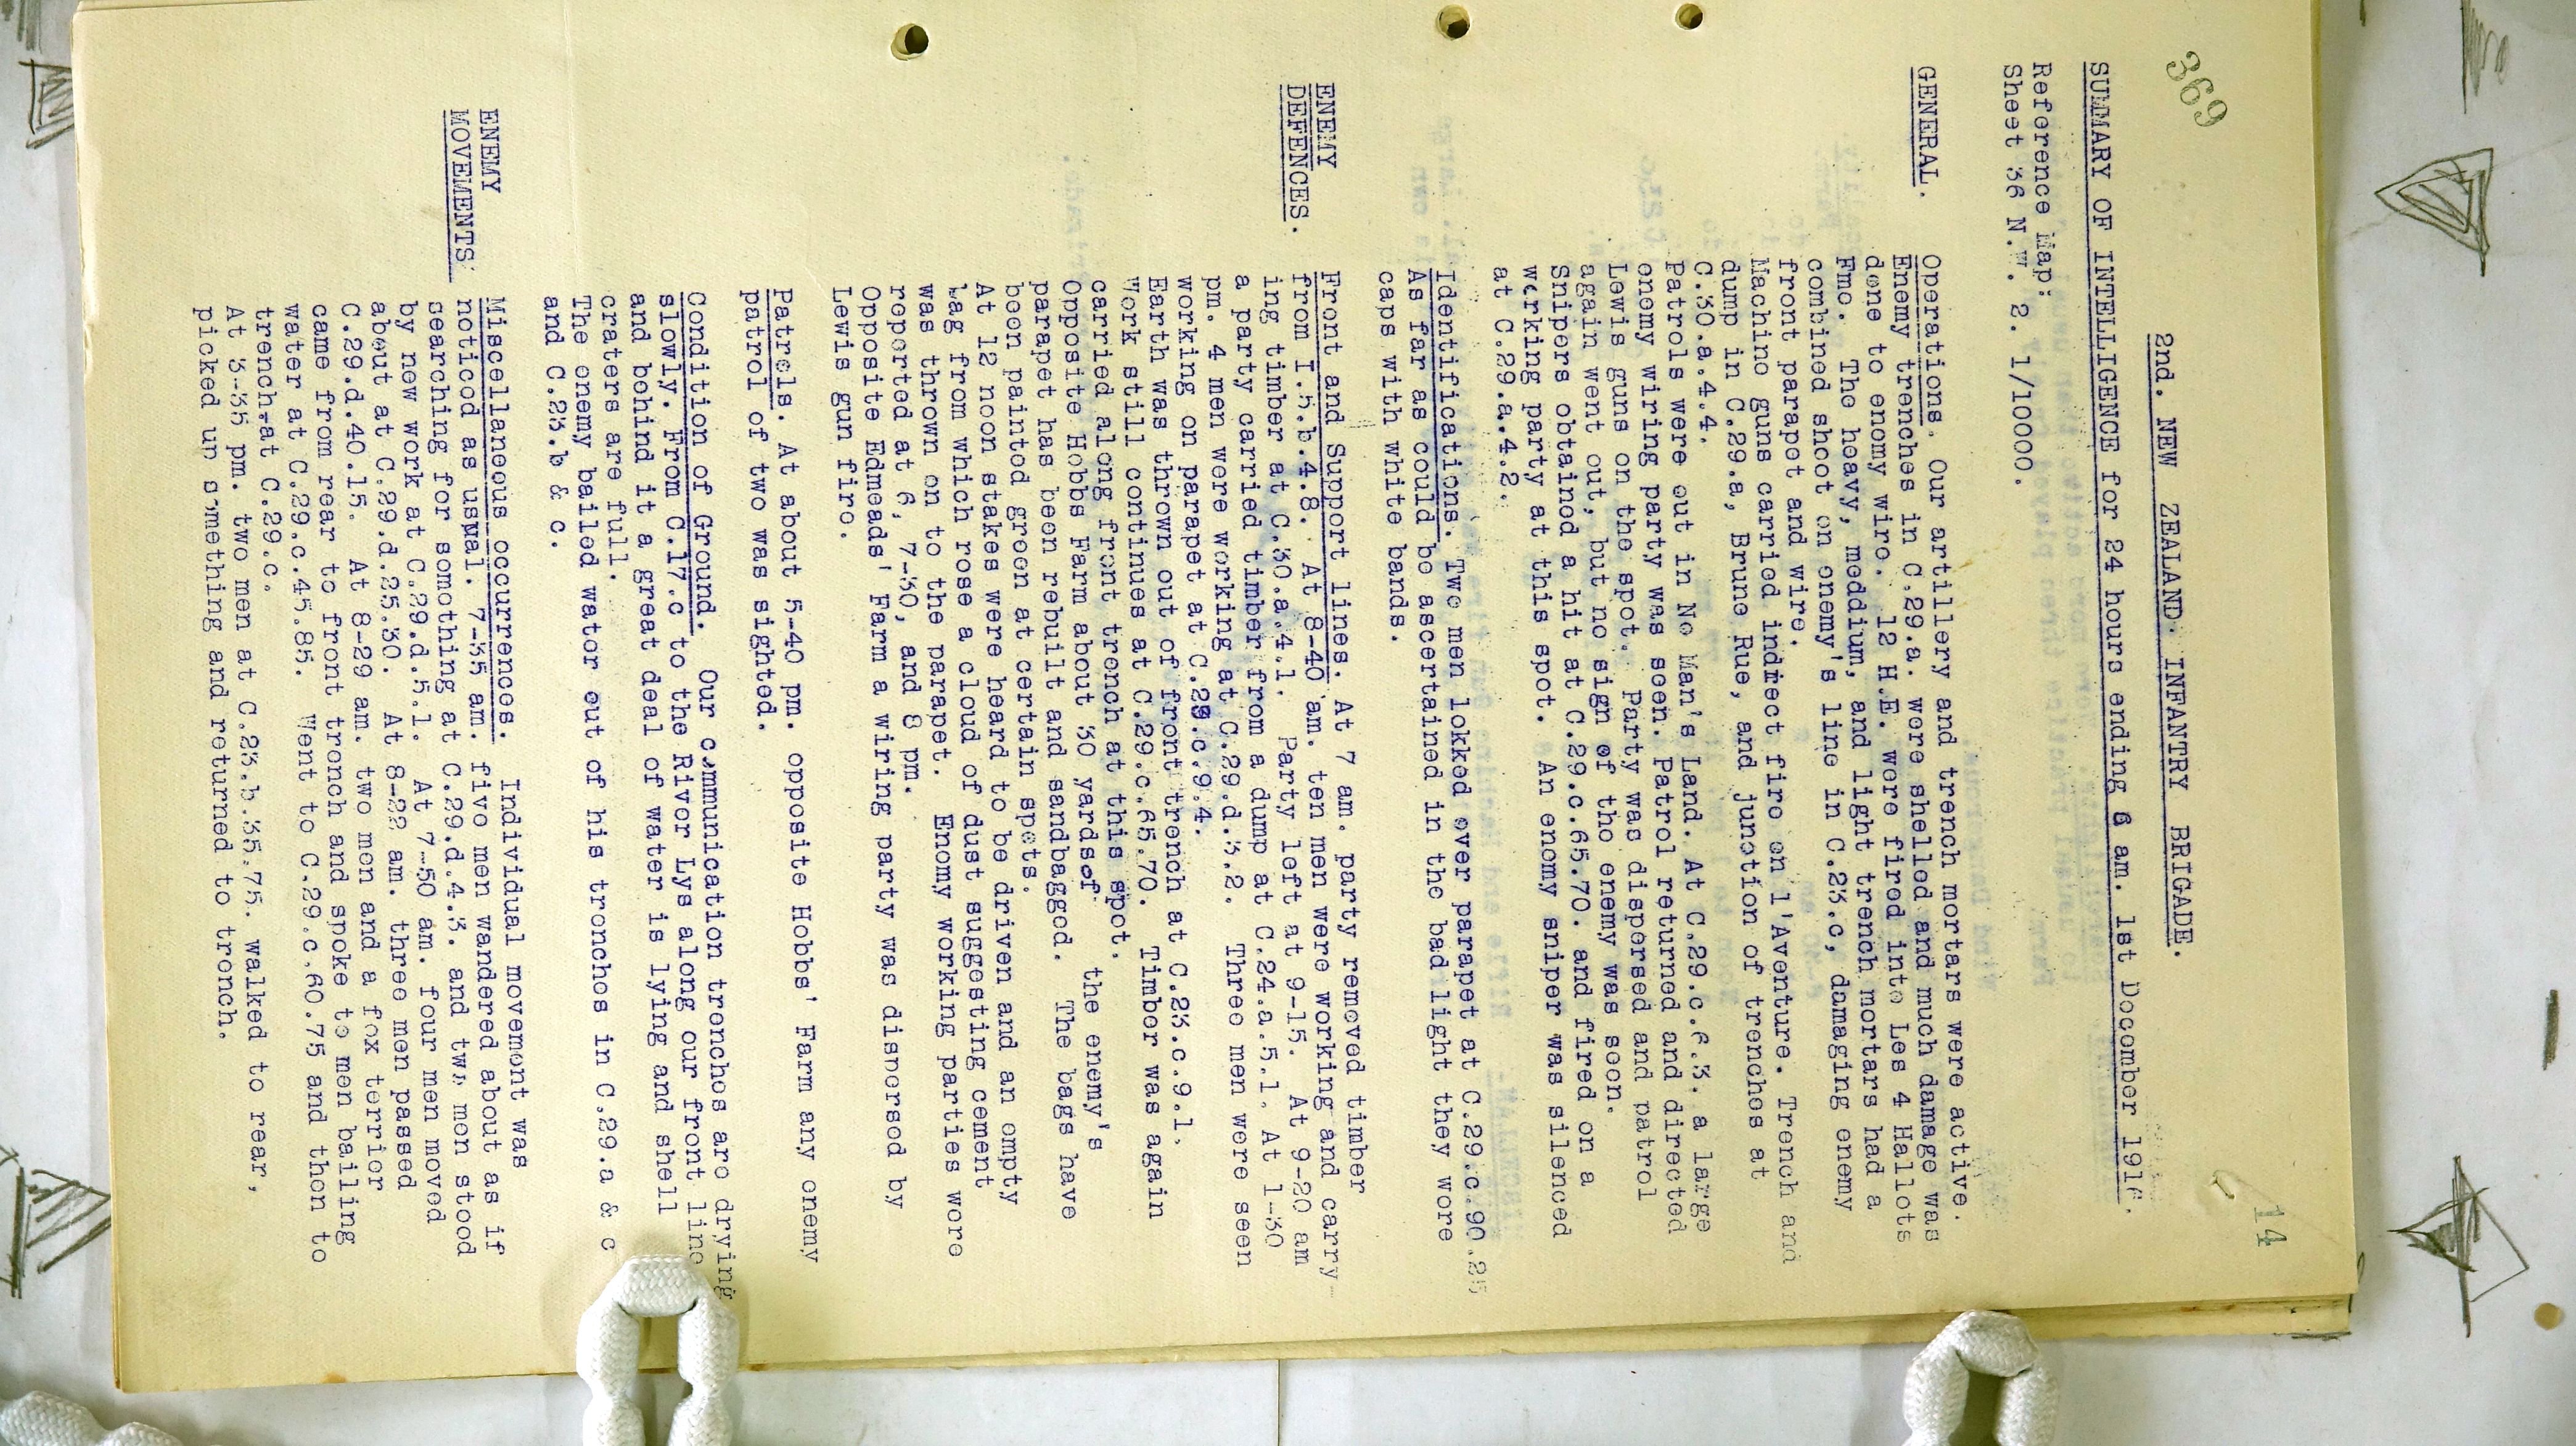 369
14
2nd. NEW ZEALAND. INFANTRY BRIGADE.
SUMMARY OF INTELLIGENCE for 24 hours ending 6 am. 1st December 1916.
Reference Map:
Sheet 36 N.W. 2. 1/10000.
GENERAL. Operations. Our artillery and trench mortars were active.
Enemy trenches in C.29.a. were shelled and much damage was
done to enemy wire. 12 H.E. were fired into Les 4 Hallots
Fme. The heavy, meddium, and light trench mortars had a
combined shoot on enemy's line in C.23.c, damaging enemy
front parapet and wire.
Machine guns carried indrect fire on l'Aventure. Trench and
dump in C.29.a, Brune Rue, and junction of trenches at
C.30.a.4.4.
Patrols were out in No Man's Land. At C.29.c.6.3. a large
enemy wiring party was seen. Patrol returned and directed
Lewis guns on the spot. Party was dispersed and patrol
again went out, but no sign of the enemy was seen.
Snipers obtained a hit at C.29.c.65.70. and fired on a
working party at this spot. An enemy sniper was silenced
at C.29.a.4.2.
Identifications. Two men lokked over parapet at C.29.c.90.25
As far as could be ascertained in the bad light they were
caps with white bands.
ENEMY
DEFENCES. Front and Support lines. At 7 am. party removed timber
from I.5.b.4.8. At 8-40 am. ten men were working and carry-
ing timber at C.30.a.4.1. Party left at 9-15. At 9-20 am
a party carried timber from a dump at C.24.a.5.1. At 1-30
pm. 4 men were working at C.29.d.3.2. Three men were seen
working on parapet at C.29.c.9.4.
Earth was thrown out of front trench at C.23.c.9.1.
Work still continues at C.29.c.65.70. Timber was again
carried along front trench at this spot.
Opposite Hobbs Farm about 30 yards of the enemy's
parapet has been rebuilt and sandbagged. The bags have
been painted green at certain spots.
At 12 noon stakes were heard to be driven and an empty
bag from which rose a cloud of dust suggesting cement
was thrown on to the parapet. Enemy working parties were
reported at 6, 7-30, and 8 pm.
Opposite Edmeads' Farm a wiring party was dispersed by
Lewis gun fire.
Patrols. At about 5-40 pm. opposite Hobbs' Farm any enemy
patrol of two was sighted.
Condition of Ground. Our communication trenches are drying
slowly. From C.17.c to the River Lys along our front line
and behind it a great deal of water is lying and shell
craters are full.
The enemy bailed water out of his trenches in C.29.a & c
and C.23.b & c.
ENEMY
MOVEMENTS: Miscellaneous occurrences. Individual movement was
noticed as usual. 7-35 am. five men wandered about as if
searching for something at C.29.d.4.3. and two men stood
by new work at C.29.d.5.1. At 7-50 am. four men moved
about at C.29.d.25.30. At 8-22 am. three men passed
C.29.d.40.15. At 8-29 am. two men and a fox terrior
came from rear to front trench and spoke to men bailing
water at C.29.c.45.85. Went to C.29.c.60.75 and then to
trench at C.29.c.
At 3-35 pm. two men at C.23.b.35.75. walked to rear,
picked up something and returned to trench.